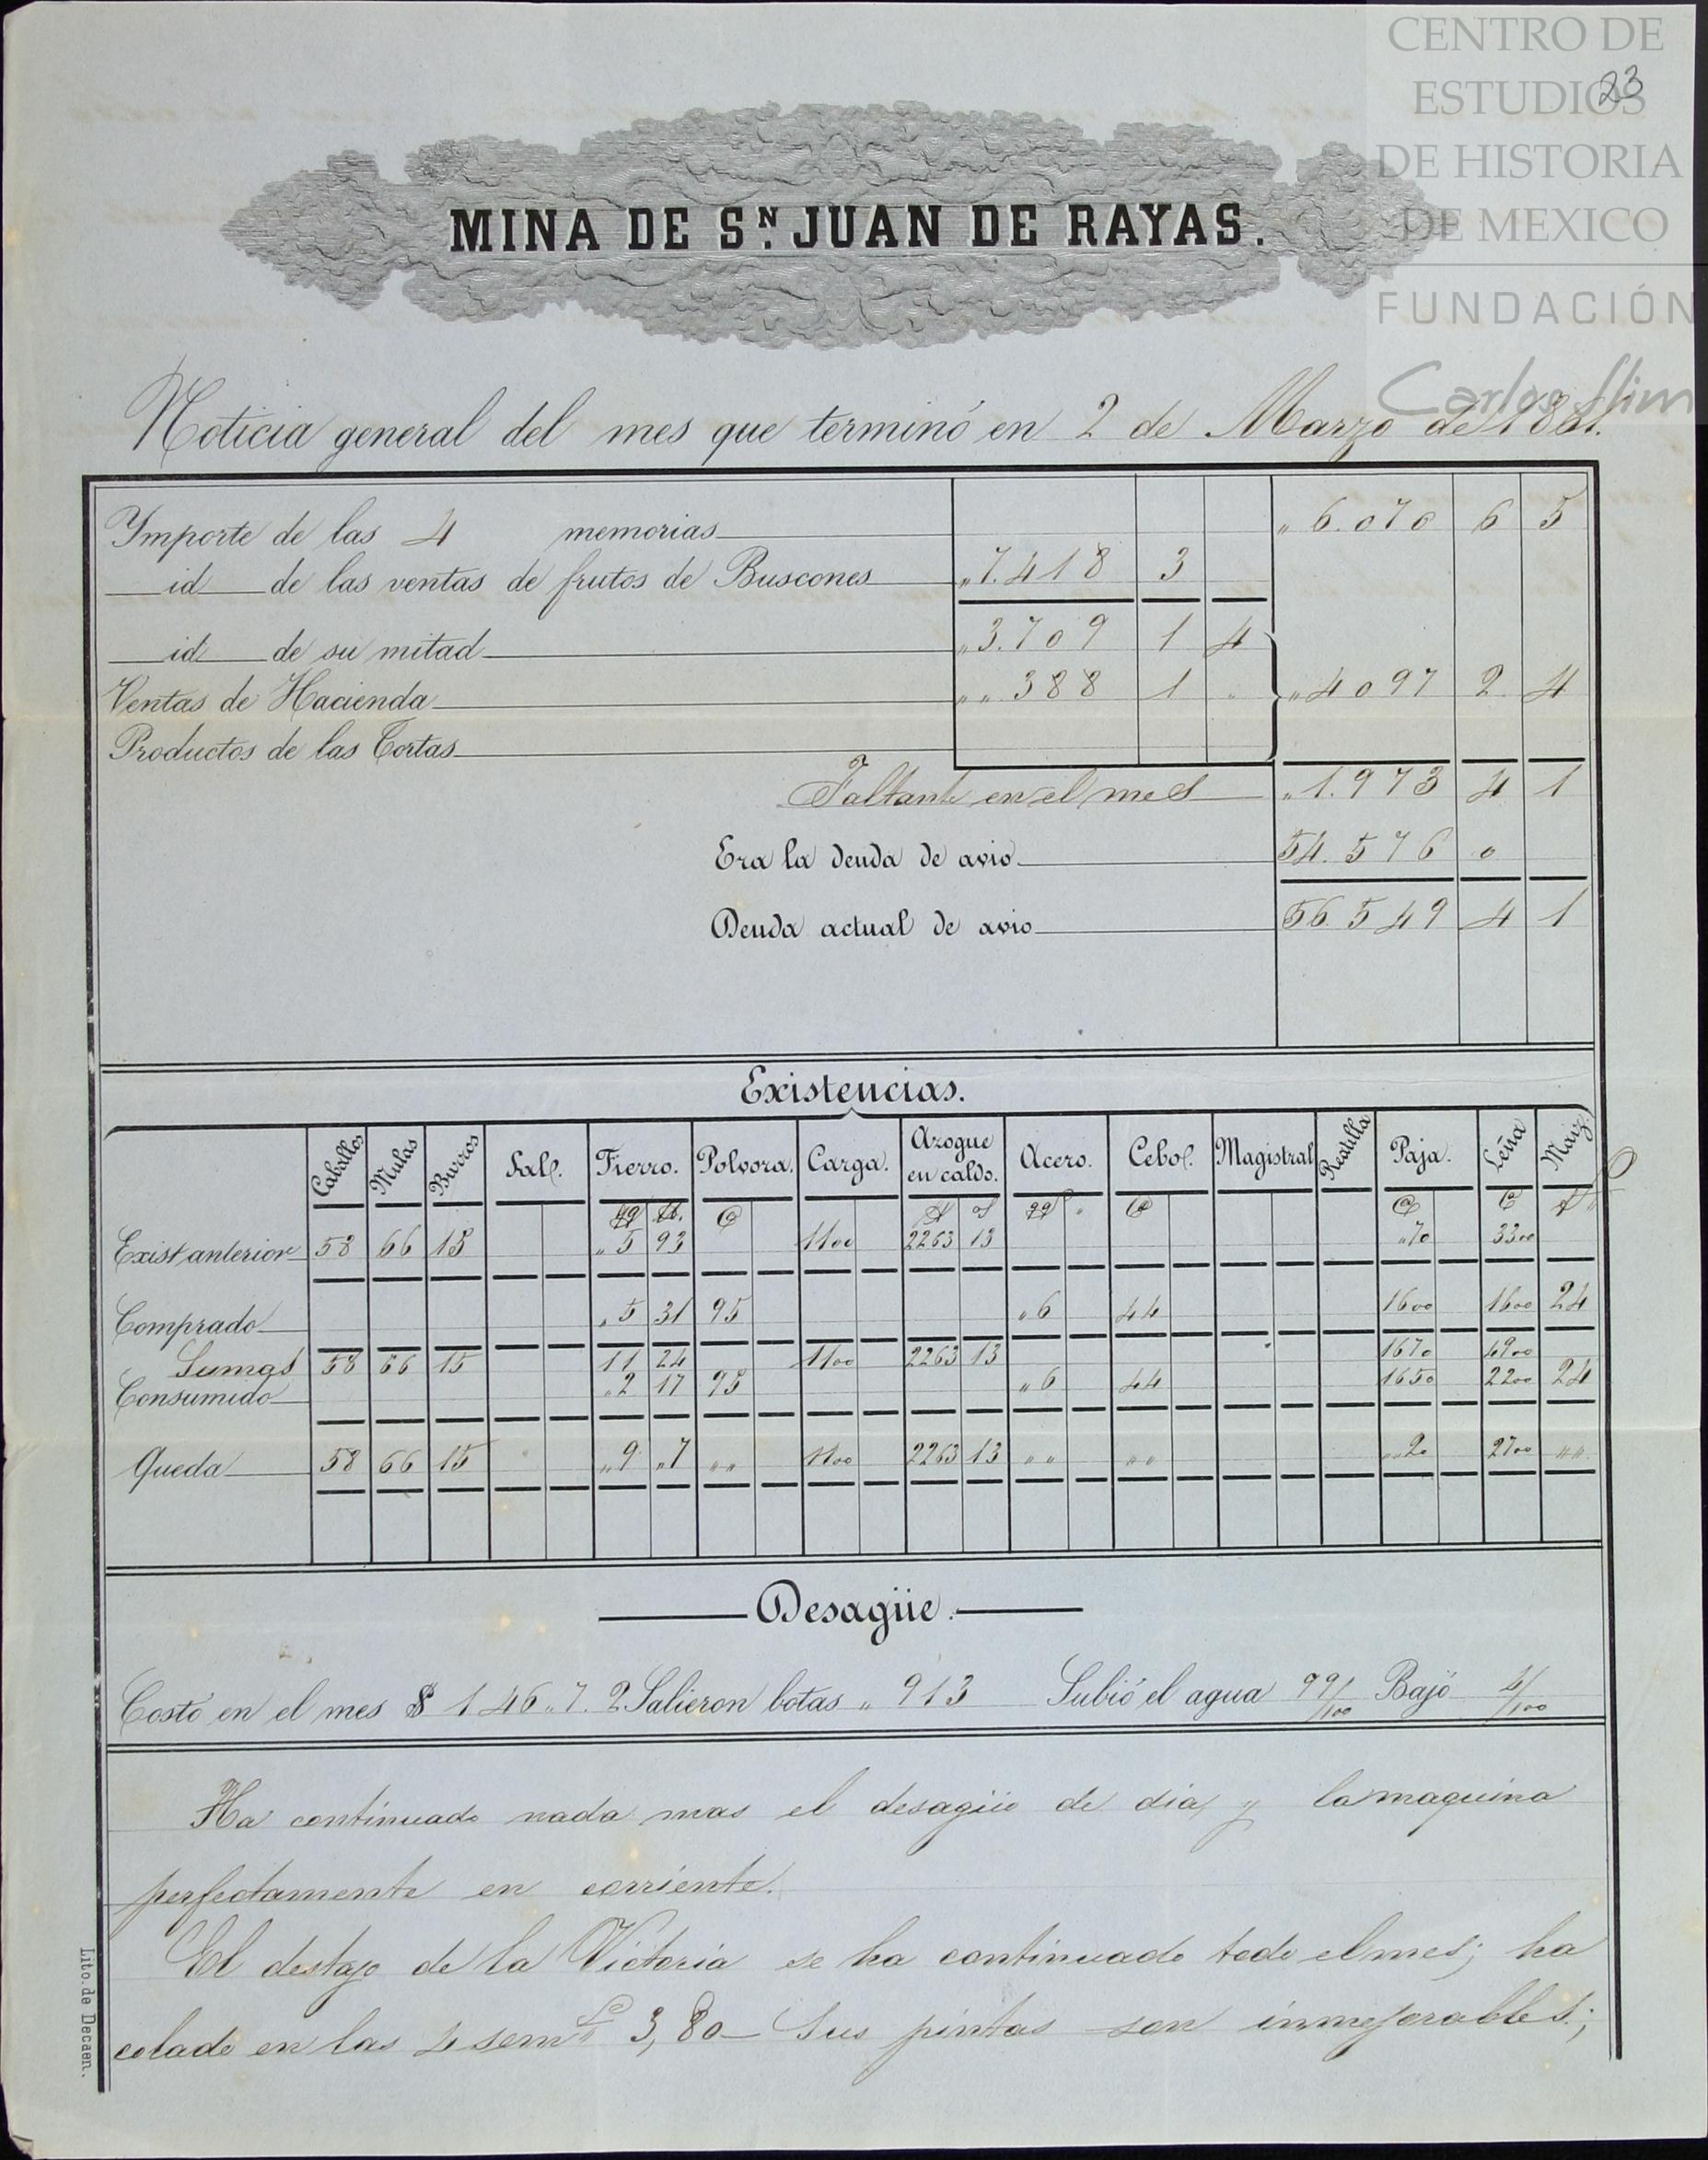 CENTRO DE
ESTUDIOS
DE HISTORIA
DE MEXICO
FUNDACIÓN
Carlos Slim
23
MINA DE S.N JUAN DE RAYAS.
Noticia general del mes que terminó en 2 de Marzo de 1861.
Importe de las 4 memorias „6.070 6 5
id de las ventas de frutos de Buscones „7.418 3
id de su mitad „3.709 1 4
Ventas de Hacienda „„388 1 „ „4097 2 4
Productos de las Tortas
Faltante en el mes „1.973 4 1
Era la deuda de avio 54.576 0
Deuda actual de avio 56.549 4 1
Existencias.
Caballos Mulas Burros Sal. Fierro. Polvora. Carga. Azogue en caldo. Acero. Cebo. Magistral Reatilla Paja. Léña Maiz
Exist anterior 58 66 15 „5 93 1100 2263 13 „70 3300
Comprado „5 31 95 „6 44 1600 1600 24
Sumas 58 66 15 11 24 1100 2263 13 1670 4900
Consumido „2 17 95 „6 44 1650 2200 24
Queda 58 66 15 „9 „7 „„ 1100 2263 13 „„ „„ „„20 2700 „„
Desagüe.
Costó en el mes $ 146„7.2 Salieron botas „913 Subió el agua 99/100 Bajó 4/100
Ha continuado nada mas el desagüe de dia, y la maquina
perfectamente en corriente.
El destajo de la Victoria se ha continuado todo el mes; ha
colado en las 4 sems 3,80 - Sus pintas son inmejorables;
Lito. de Decaen.